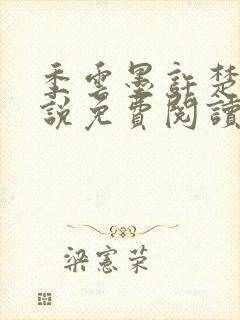 季雲墨許楚
說免費閱讀
梁憲荣